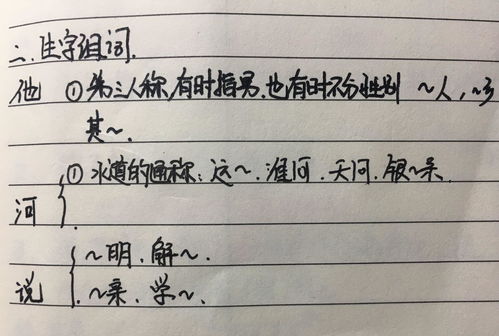 二、生字组词.
他 ①第三人称,有时指男.也有时不分性别 ~人,~乡
其~.
①水道的通称:运~.淮河.天河.银~系.
河
~明.解~.
说 ~亲.学~.